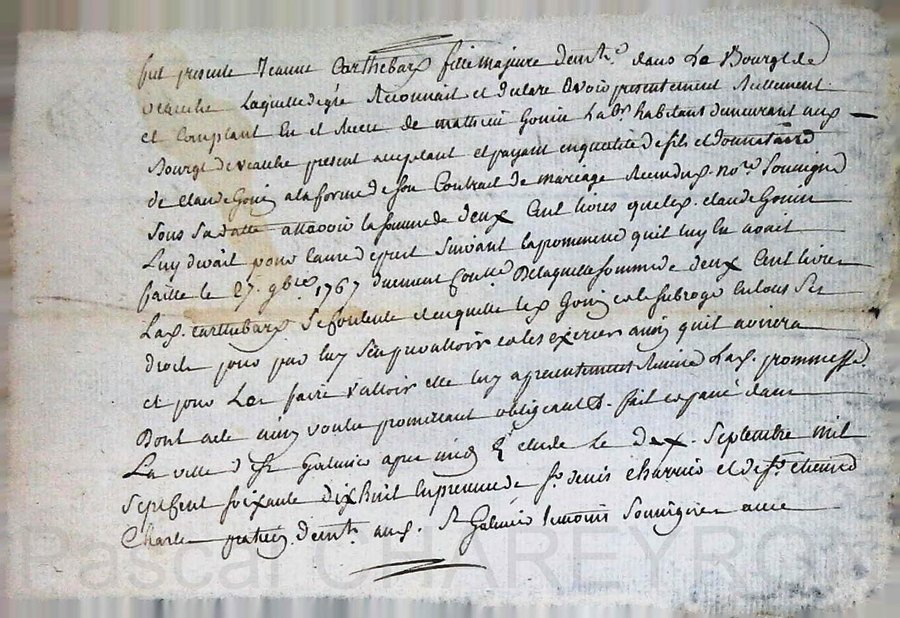 fut presente Jeanne Carthebard fille majeure demt.e dans Le Bourgt de
veauche Laquelle de gré Reconnait et declare avoir presentement Reellement
et Comptant Eu et Receu de mathieu Gonin Lab.r habitant demeurant aux
Bourgt de veauche present acceptant et payant en qualité de fils et donnataire
de Claude Gonin a la forme de son Contrait de mariage Receu dux no.re Soussigné
sous sa datte assavoir la somme de deux Cent livres que le x. claude Gonin
Luy devait pour cause de prest suivant la prommesse qu'il luy En avait
faitte le 27. 9bre 1767 duement De laquelle somme de deux Cent livres
La x. carthebard se Contente et en quitte le x Gonin et le subroge en tous ses
droits pour par luy s'en prevalloir et les exercer ainsi qu'il avisera
et pour Les faire valloir elle luy a presentement Remise La x. prommesse.
Dont acte ainsi voulu promettant obligeant &. fait et passé dans
La ville de S.t Galmier apres midi le deux. Septembre mil
sept Cent soixante dix huit en presence de s.r denis Charrier et de s.r etienne
Charle praticiens demt. aux. S.t Galmier temoins Soussignés avec
Pascal CHAREYRON